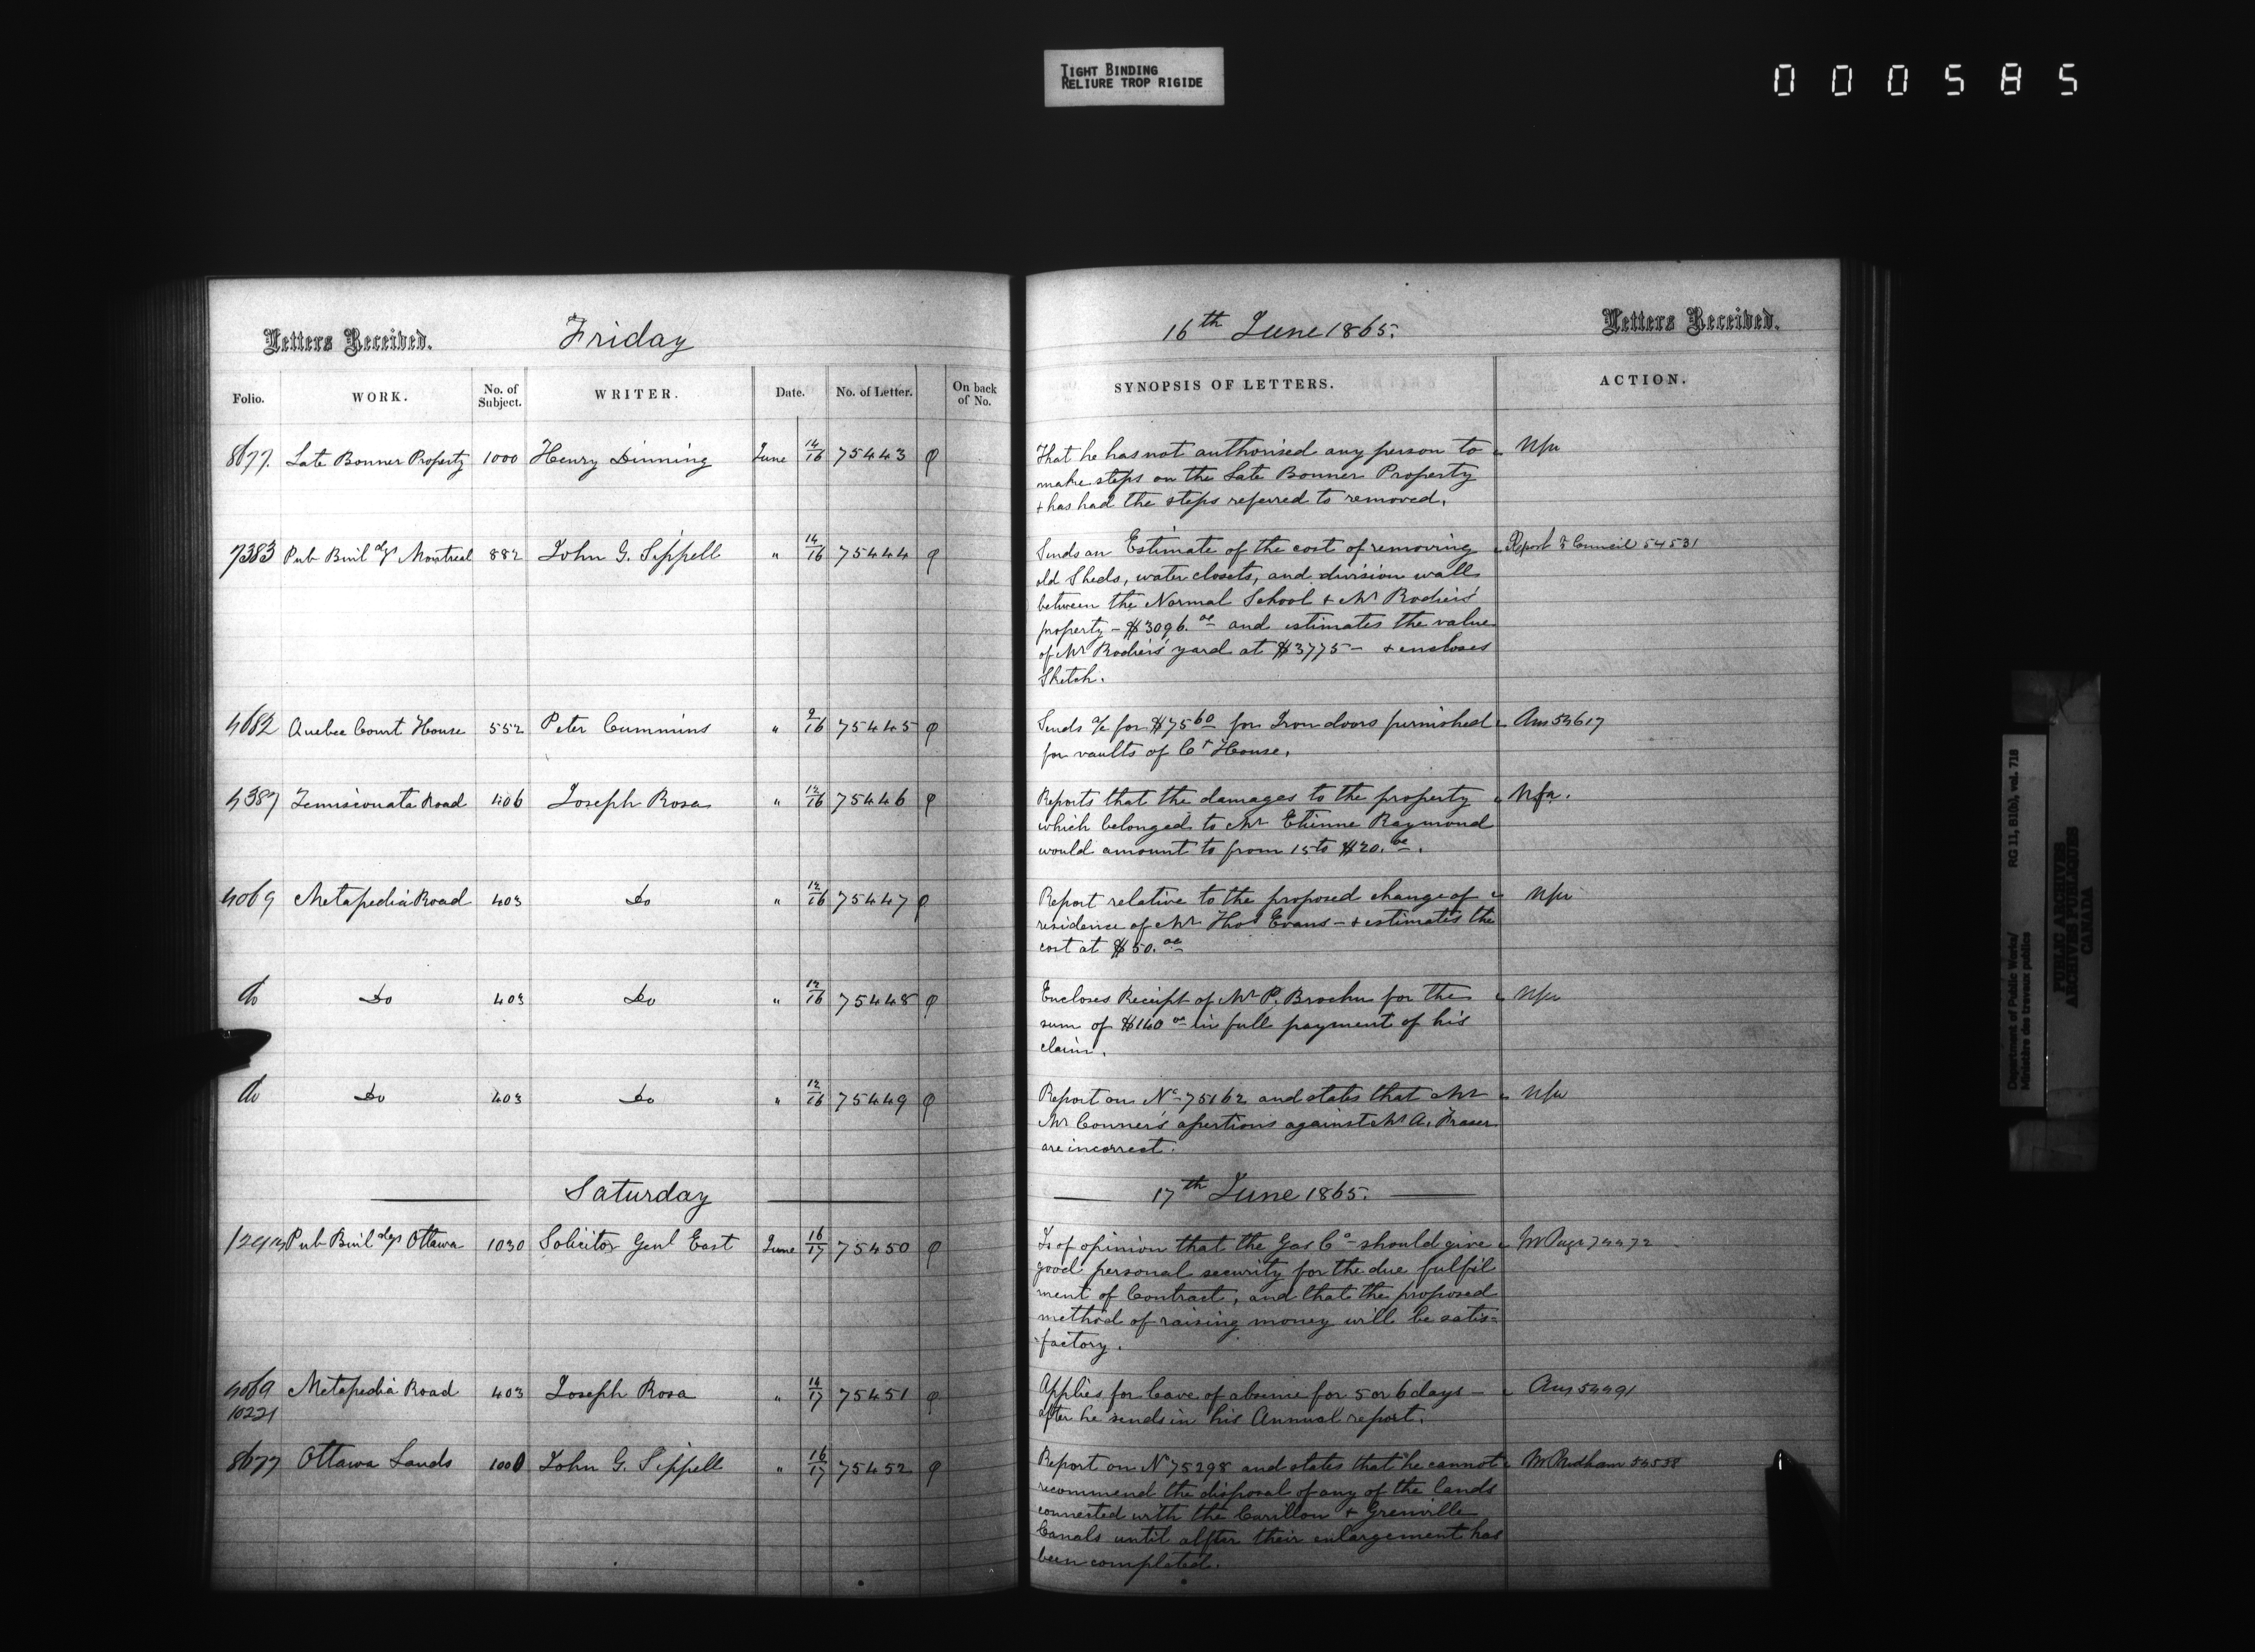 TIGHT BINDING
RELIURE TROP RIGIDE
000585
Letters Received. Friday
Folio. WORK. No. of Subject. WRITER. Date. No. of Letter. On back of No.
8677. Late Bonner Property 1000 Henry Dinning June 14/16 75443
7383 Pub Buildgs Montreal 882 John G. Sippell " 14/16 75444
4682 Quebec Court House 552 Peter Cummins " 9/16 75445
4387 Temisconata Road 406 Joseph Rosa " 12/16 75446
4069 Metapedia Road 403 Do " 12/16 75447
do Do 403 Do " 12/16 75448
do Do 403 Do " 12/16 75449
Saturday
Pub Buildgs Ottawa 1030 Solicitor Genl East June 16/17 75450
4069 Metapedia Road 403 Joseph Rosa " 14/17 75451
10221
8677 Ottawa Lands 1000 John G. Sippell " 16/17 75452
16th June 1865. Letters Received.
SYNOPSIS OF LETTERS. ACTION.
That he has not authorised any person to Nfa
make steps on the Late Bonner Property
+ has had the steps referred to removed.
Sends an Estimate of the cost of removing Report to Council 54531
old Sheds, water closets, and division wall
between the Normal School + Mr Rodier's
property - $3096.00 and estimates the value
of Mr Rodier's yard at $3775 - + encloses
Sketch.
Sends a/c for $75 60 for Iron doors furnished Ans 54617
for vaults of Ct House.
Reports that the damages to the property Nfa.
which belonged to Mr Etienne Raymond
would amount to from 15 to $20.00.
Report relative to the proposed change of Nfa
residence of Mr Thos Evans - + estimates the
cost at $50.00
Encloses Receipt of Mr P. Brochu for the Nfa
sum of $160 00 in full payment of his
claim.
Report on No 75162 and states that Mr Nfa
Mr Conner's assertions against Mr A. Fraser
are incorrect.
17th June 1865.
Is of opinion that the Gas Co should give Mr Page
good personal security for the due fulfil
ment of Contract, and that the proposed
method of raising money will be satis=
=factory.
Applies for leave of absence for 5 or 6 days - Ans 54491
after he sends in his Annual report.
Report on No 75298 and states that he cannot Mr Pridham 54538
recommend the disposal of any of the lands
connected with the Carillon + Grenville
Canals until after their enlargement has
been completed.
Department of Public Works/ RG 11, B1(b), vol. 718
Ministère des travaux publics
PUBLIC ARCHIVES
ARCHIVES PUBLIQUES
CANADA